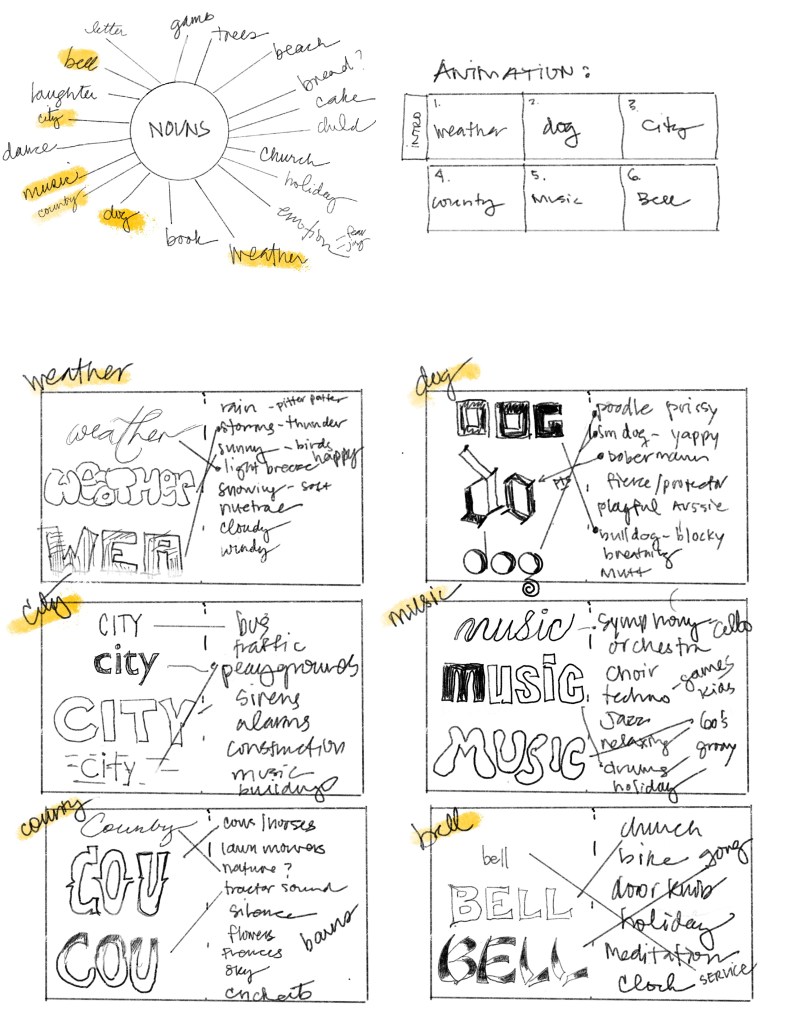 letter
game
trees
beach
bread?
cake
child
church
holiday
emotion - fear
- joy
weather
book
dog
county
music
dance
city
laughter
bell
NOUNS
ANIMATION:
INTRO
1.
weather
2.
dog
3.
City
4.
county
5.
Music
6.
Bell
weather
weather
WEATHER
WEA
rain - pitter patter
storms - thunder
sunny - birds
happy
light breeze
snowing - soft
nuetral
cloudy
windy
dog
DOG
DO
doo
poodle prissy
sm dog - yappy
bobermann
fierce/protector
playful Aussie
bulldog - blocky
breathing
mutt
city
CITY
city
CITY
city
bus
traffic
playgrounds
sirens
alarms
construction
music
buildings
music
music
MUSIC
MUSIC
symphony - cello
orchestra
choir
techno - games
kids
Jazz
60's
relaxing
groovy
drums
holiday
county
County
COU
COU
cows/horses
lawn mowers
nature?
tractor sound
silence
flowers
barns
sky
bell
bell
BELL
BELL
church
bike
gong
door knob
holiday
Meditation
SERVICE
Clock